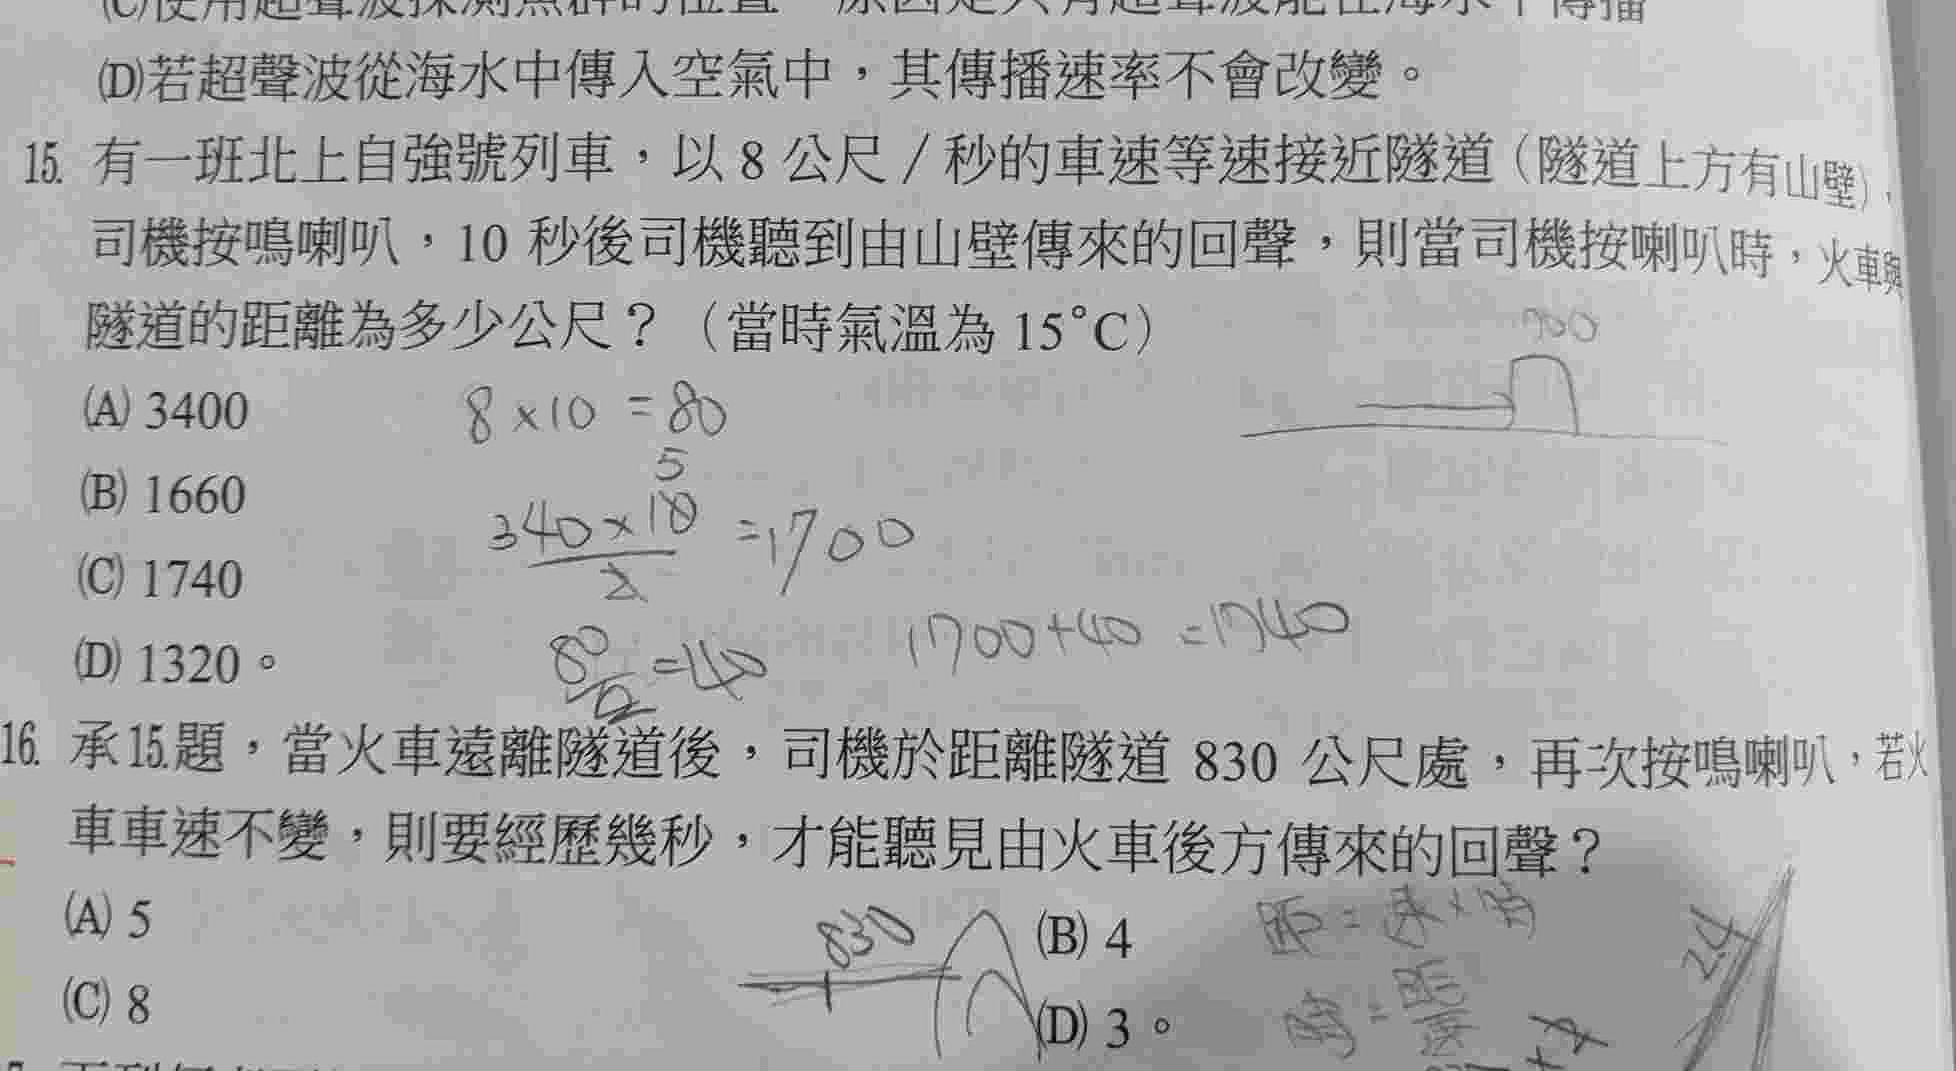 (C)使用超聲波探測魚群的位置 原因是只有超聲波能在海水中傳播
(D)若超聲波從海水中傳入空氣中，其傳播速率不會改變。
15. 有一班北上自強號列車，以 8 公尺／秒的車速等速接近隧道（隧道上方有山壁），
司機按鳴喇叭，10 秒後司機聽到由山壁傳來的回聲，則當司機按喇叭時，火車與
隧道的距離為多少公尺？（當時氣溫為 15°C）
700
(A) 3400
8×10 =80
(B) 1660
5
340×10
=1700
2
(C) 1740
1700+40 =1740
(D) 1320。
80/2=40
16. 承15.題，當火車遠離隧道後，司機於距離隧道 830 公尺處，再次按鳴喇叭，若火
車車速不變，則要經歷幾秒，才能聽見由火車後方傳來的回聲？
(A) 5
830
(B) 4
距=速×時
24
(C) 8
(D) 3。
時=距/速